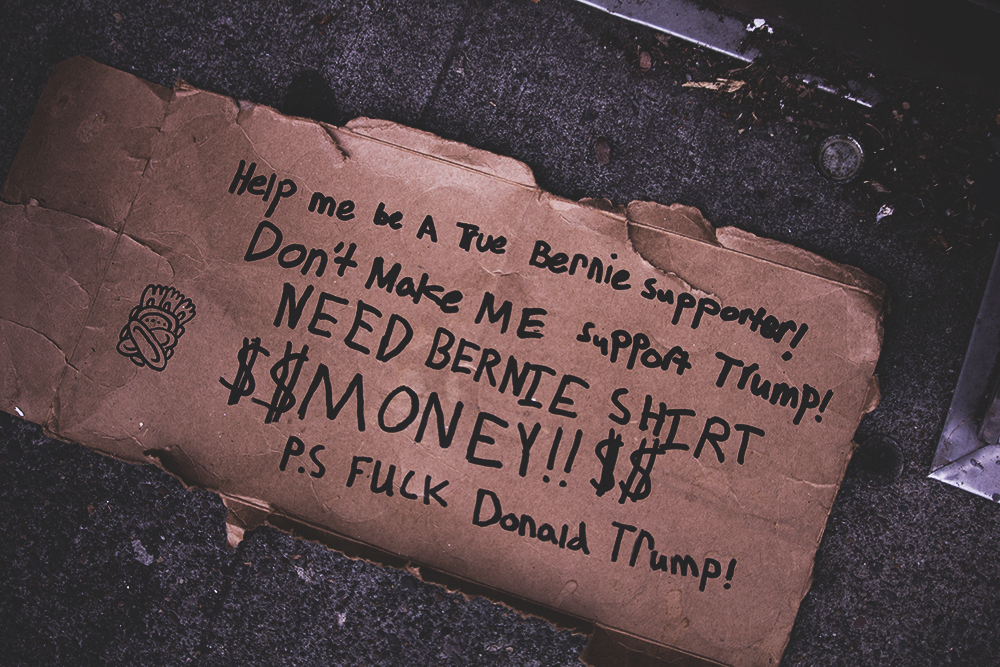 Help me be A True Bernie supporter!
Don't Make ME support Trump!
NEED BERNIE SHIRT
$$MONEY!! $$
P.S FUCK Donald Trump!